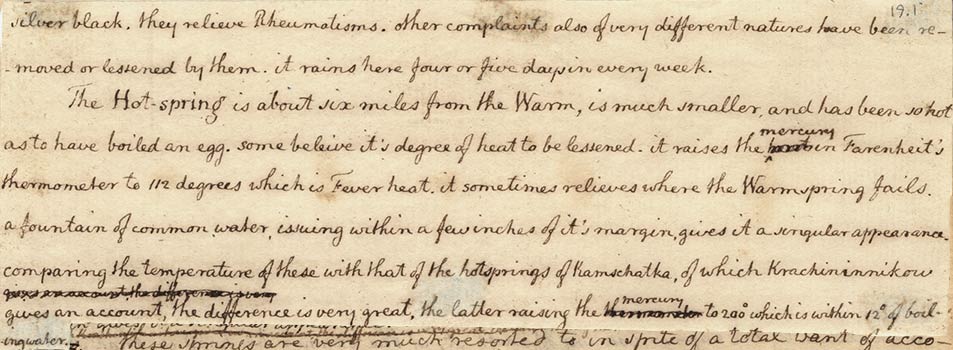 19.1
silver black. they relieve Rheumatisms. other complaints also of very different natures have been re-
-moved or lessened by them. it rains here four or five days in every week.
The Hot-spring is about six miles from the Warm, is much smaller, and has been so hot
as to have boiled an egg. some beleive it's degree of heat to be lessened. it raises the mercury in Farenheit's
thermometer to 112 degrees which is Fever heat. it sometimes relieves where the Warmspring fails.
a fountain of common water, issuing within a few inches of it's margin, gives it a singular appearance.
comparing the temperature of these with that of the hotsprings of Kamschatka, of which Krachininnikow
gives an account, the difference is very great, the latter raising the mercury to 200° which is within 12° of boil-
ing water. These springs are very much resorted to in spite of a total want of acco-